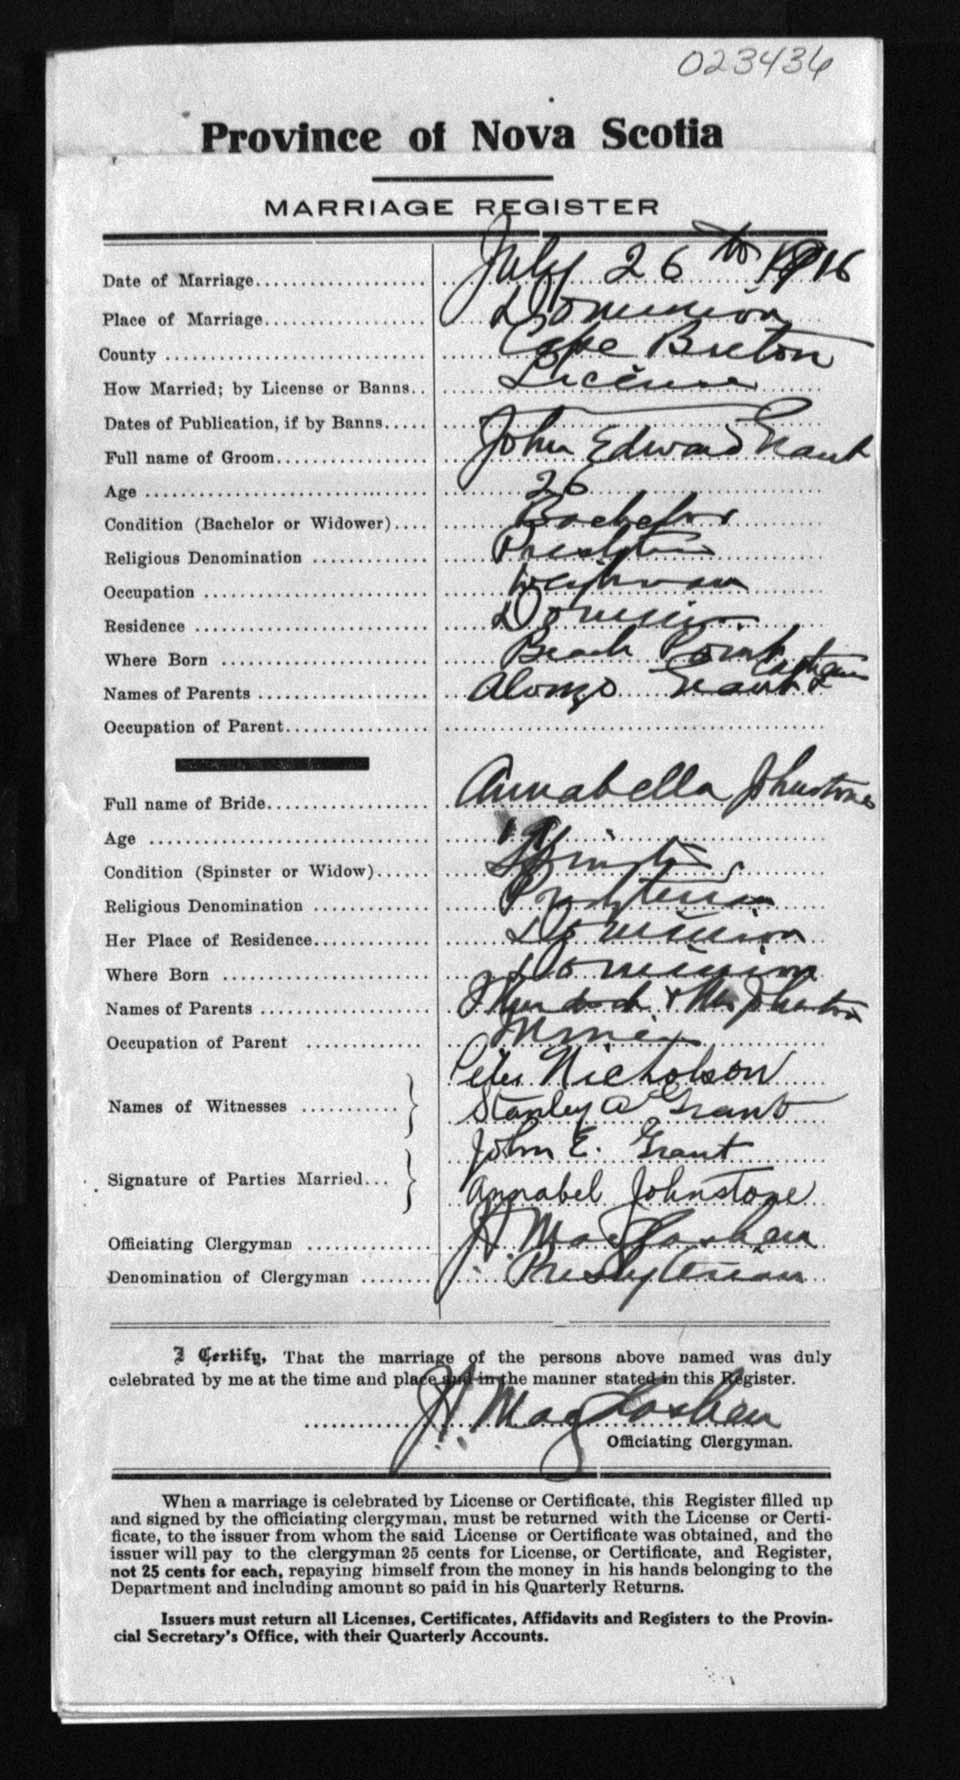 023436
Province of Nova Scotia
MARRIAGE REGISTER
Date of Marriage July 26th 1916
Place of Marriage Dominion
County Cape Breton
How Married; by License or Banns License
Dates of Publication, if by Banns
Full name of Groom John Edward Grant
Age 26
Condition (Bachelor or Widower) Bachelor
Religious Denomination
Occupation Weighman
Residence Dominion
Where Born Beach Point
Names of Parents Alonzo Grant &
Occupation of Parent
Full name of Bride Annabella Johnstone
Age 19
Condition (Spinster or Widow) Spinster
Religious Denomination Presbyterian
Her Place of Residence Dominion
Where Born Dominion
Names of Parents Murdoch & Mrs Johnston
Occupation of Parent Miner
Peter Nicholson
Names of Witnesses
Stanley A Grant
John E. Grant
Signature of Parties Married
Annabel Johnstone
Officiating Clergyman J. MacGlashen
Denomination of Clergyman Presbyterian
I Certify, That the marriage of the persons above named was duly
celebrated by me at the time and place and in the manner stated in this Register.
MacGlashen
Officiating Clergyman.
When a marriage is celebrated by License or Certificate, this Register filled up
and signed by the officiating clergyman, must be returned with the License or Certi-
ficate, to the issuer from whom the said License or Certificate was obtained, and the
issuer will pay to the clergyman 25 cents for License, or Certificate, and Register,
not 25 cents for each, repaying himself from the money in his hands belonging to the
Department and including amount so paid in his Quarterly Returns.
Issuers must return all Licenses, Certificates, Affidavits and Registers to the Provin-
cial Secretary's Office, with their Quarterly Accounts.